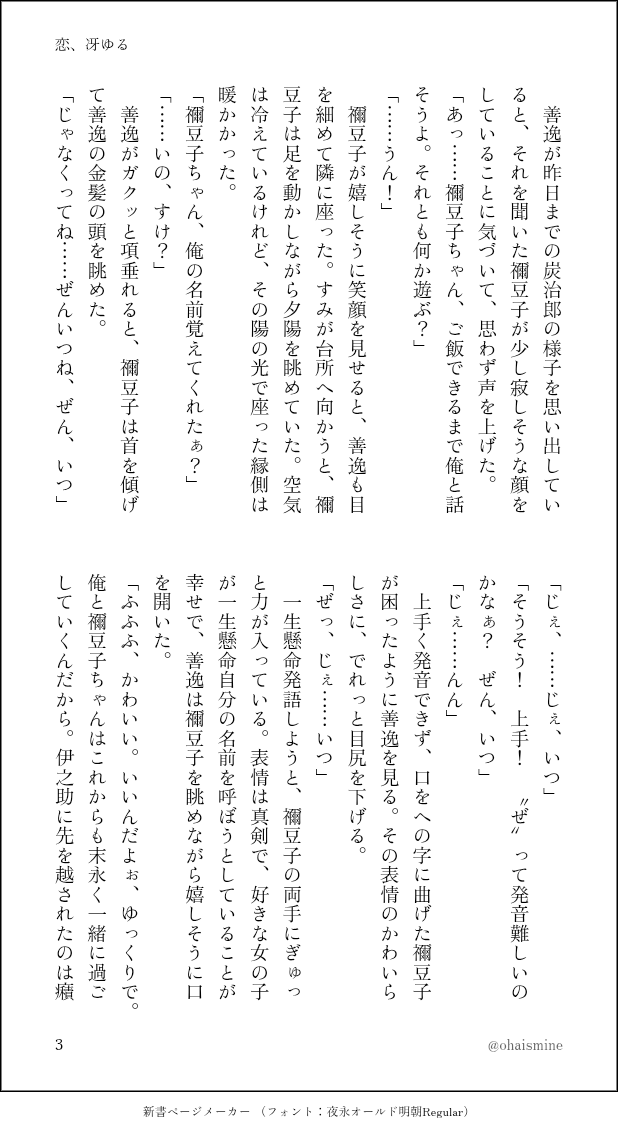 恋、冴ゆる
　善逸が昨日までの炭治郎の様子を思い出してい
ると、それを聞いた禰豆子が少し寂しそうな顔を
していることに気づいて、思わず声を上げた。
「あっ……禰豆子ちゃん、ご飯できるまで俺と話
そうよ。それとも何か遊ぶ？」
「……うん！」
　禰豆子が嬉しそうに笑顔を見せると、善逸も目
を細めて隣に座った。すみが台所へ向かうと、禰
豆子は足を動かしながら夕陽を眺めていた。空気
は冷えているけれど、その陽の光で座った縁側は
暖かかった。
「禰豆子ちゃん、俺の名前覚えてくれたぁ？」
「……いの、すけ？」
　善逸がガクッと項垂れると、禰豆子は首を傾げ
て善逸の金髪の頭を眺めた。
「じゃなくってね……ぜんいつね、ぜん、いつ」
「じぇ、……じぇ、いつ」
「そうそう！　上手！　〝ぜ〟って発音難しいの
かなぁ？　ぜん、いつ」
「じぇ……んん」
　上手く発音できず、口をへの字に曲げた禰豆子
が困ったように善逸を見る。その表情のかわいら
しさに、でれっと目尻を下げる。
「ぜっ、じぇ……いつ」
　一生懸命発語しようと、禰豆子の両手にぎゅっ
と力が入っている。表情は真剣で、好きな女の子
が一生懸命自分の名前を呼ぼうとしていることが
幸せで、善逸は禰豆子を眺めながら嬉しそうに口
を開いた。
「ふふふ、かわいい。いいんだよぉ、ゆっくりで。
俺と禰豆子ちゃんはこれからも末永く一緒に過ご
していくんだから。伊之助に先を越されたのは癪
3
@ohaismine
新書ページメーカー （フォント：夜永オールド明朝Regular）